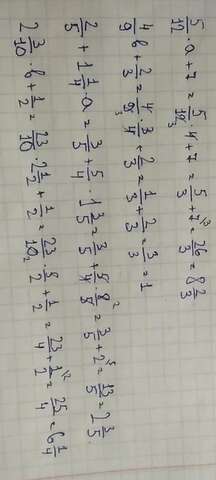 5/12 · a + 7 = 5/12₃ · 4 + 7 = 5/3 + 7\³ = 26/3 = 8 2/3
4/9 b + 2/3 = 4/9₃ · 3/4 + 2/3 = 1/3 + 2/3 = 3/3 = 1
2/5 + 1 1/4 · a = 3/5 + 5/4 · 1 3/5 = 3/5 + 5/4 · 8/5 ² = 3/5 + 2\⁵ = 13/5 = 2 3/5.
2 3/10 · b + 1/2 = 23/10 · 2 1/2 + 1/2 = 23/10₂ · 5/2 + 1/2 = 23/4 + 1/2\² = 25/4 = 6 1/4